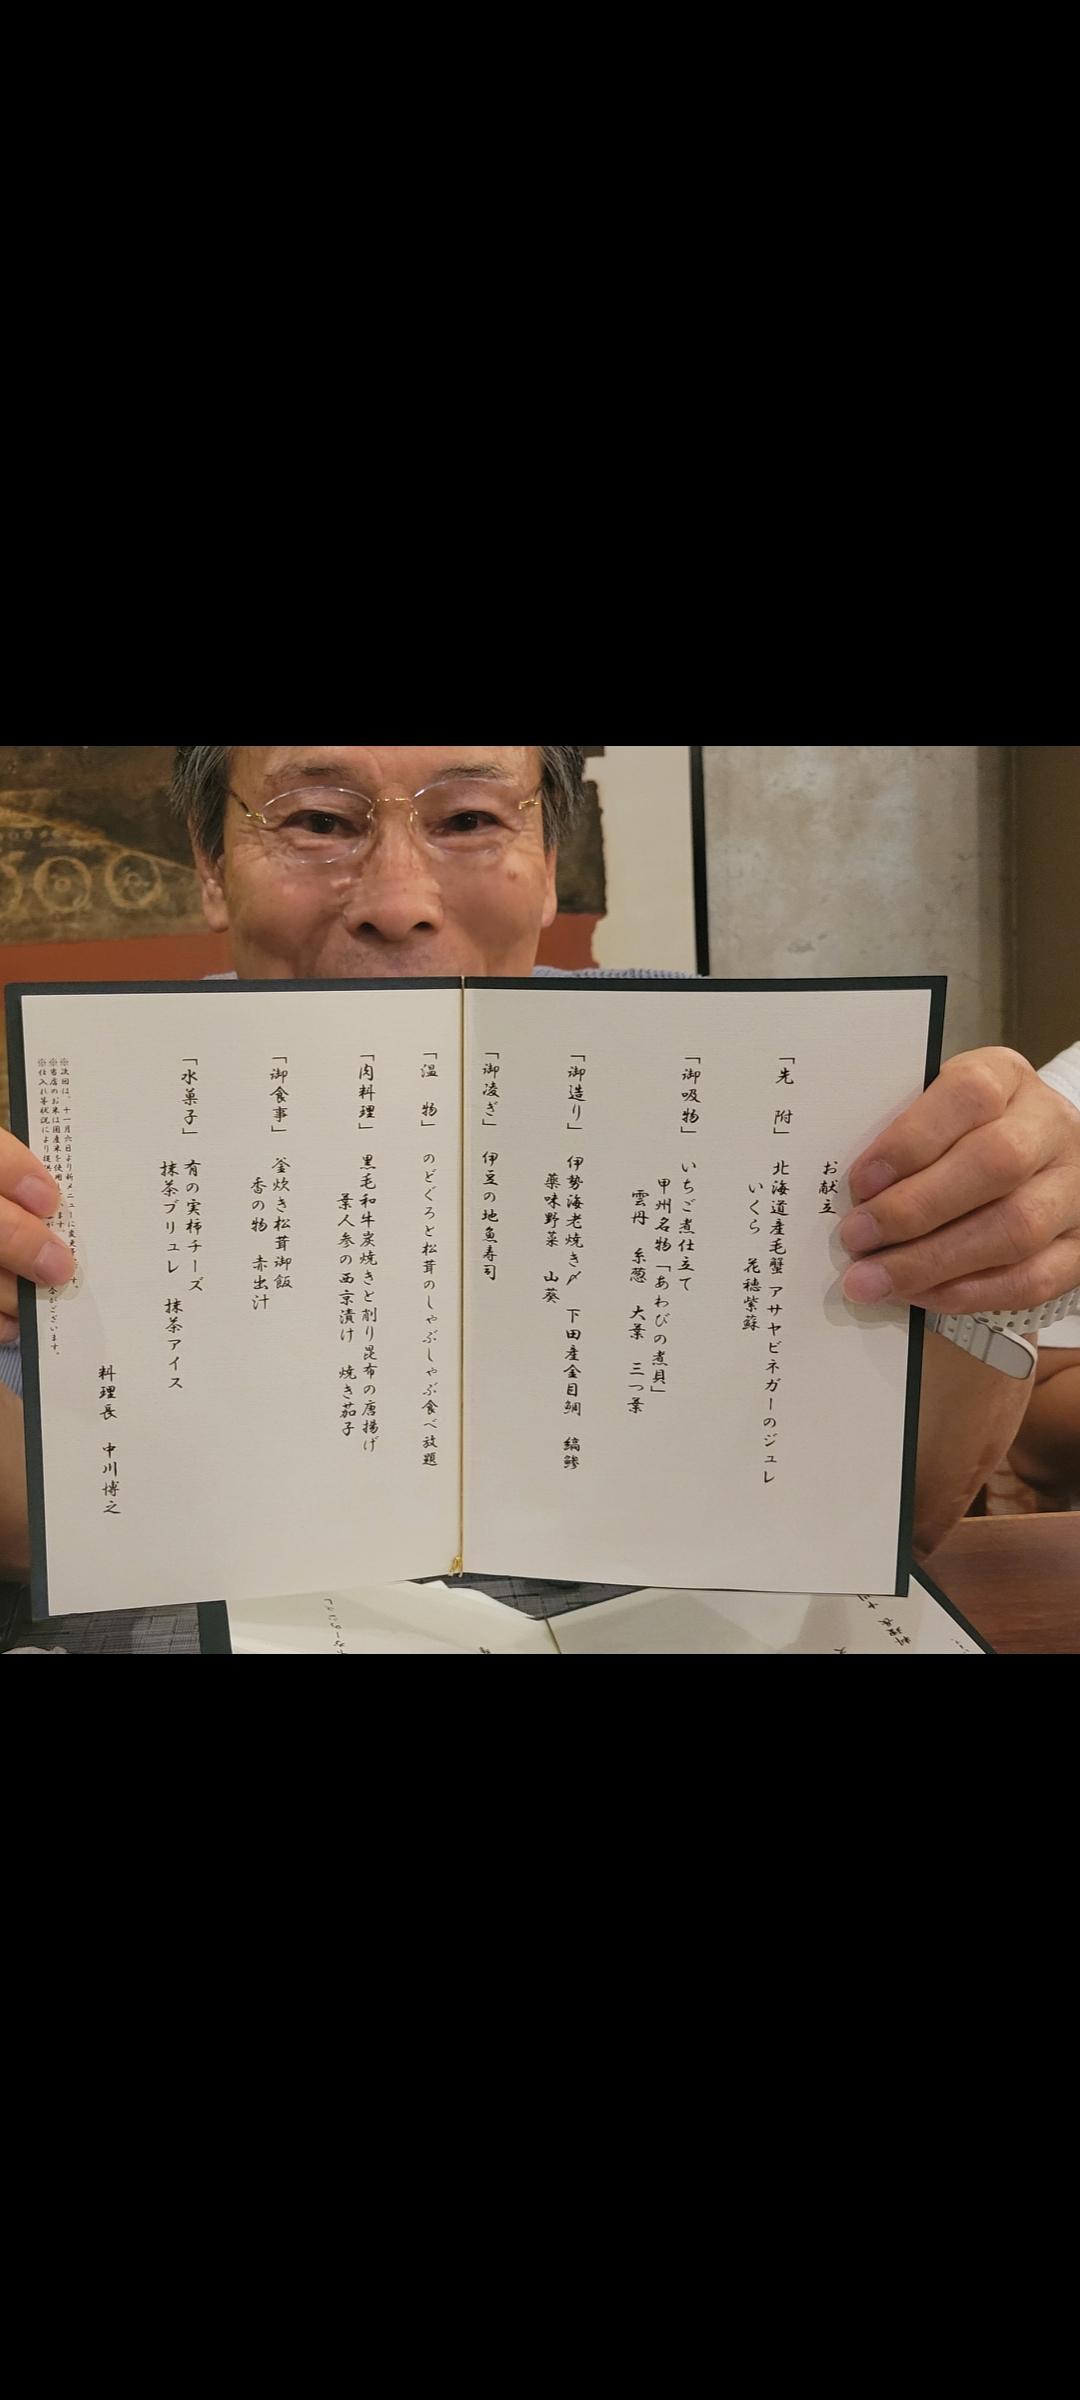 お献立
「先 附」 北海道産毛蟹 アサヤビネガーのジュレ
いくら 花穂紫蘇
「御吸物」 いちご煮仕立て
甲州名物「あわびの煮貝」
雲丹 糸葱 大葉 三つ葉
「御造り」 伊勢海老焼き〆 下田産金目鯛 縞鯵
薬味野菜 山葵
「御凌ぎ」 伊豆の地魚寿司
「温 物」 のどぐろと松茸のしゃぶしゃぶ食べ放題
「肉料理」 黒毛和牛炭焼きと削り昆布の唐揚げ
葉人参の西京漬け 焼き茄子
「御食事」 釜炊き松茸御飯
香の物 赤出汁
「水菓子」 有の実柿チーズ
抹茶ブリュレ 抹茶アイス
料理長 中川博之
※次回は、十一月六日より新メニューに変更
※当店のお米は国産米を使用
※仕入れ等状況により提供 合がございます。
料理長